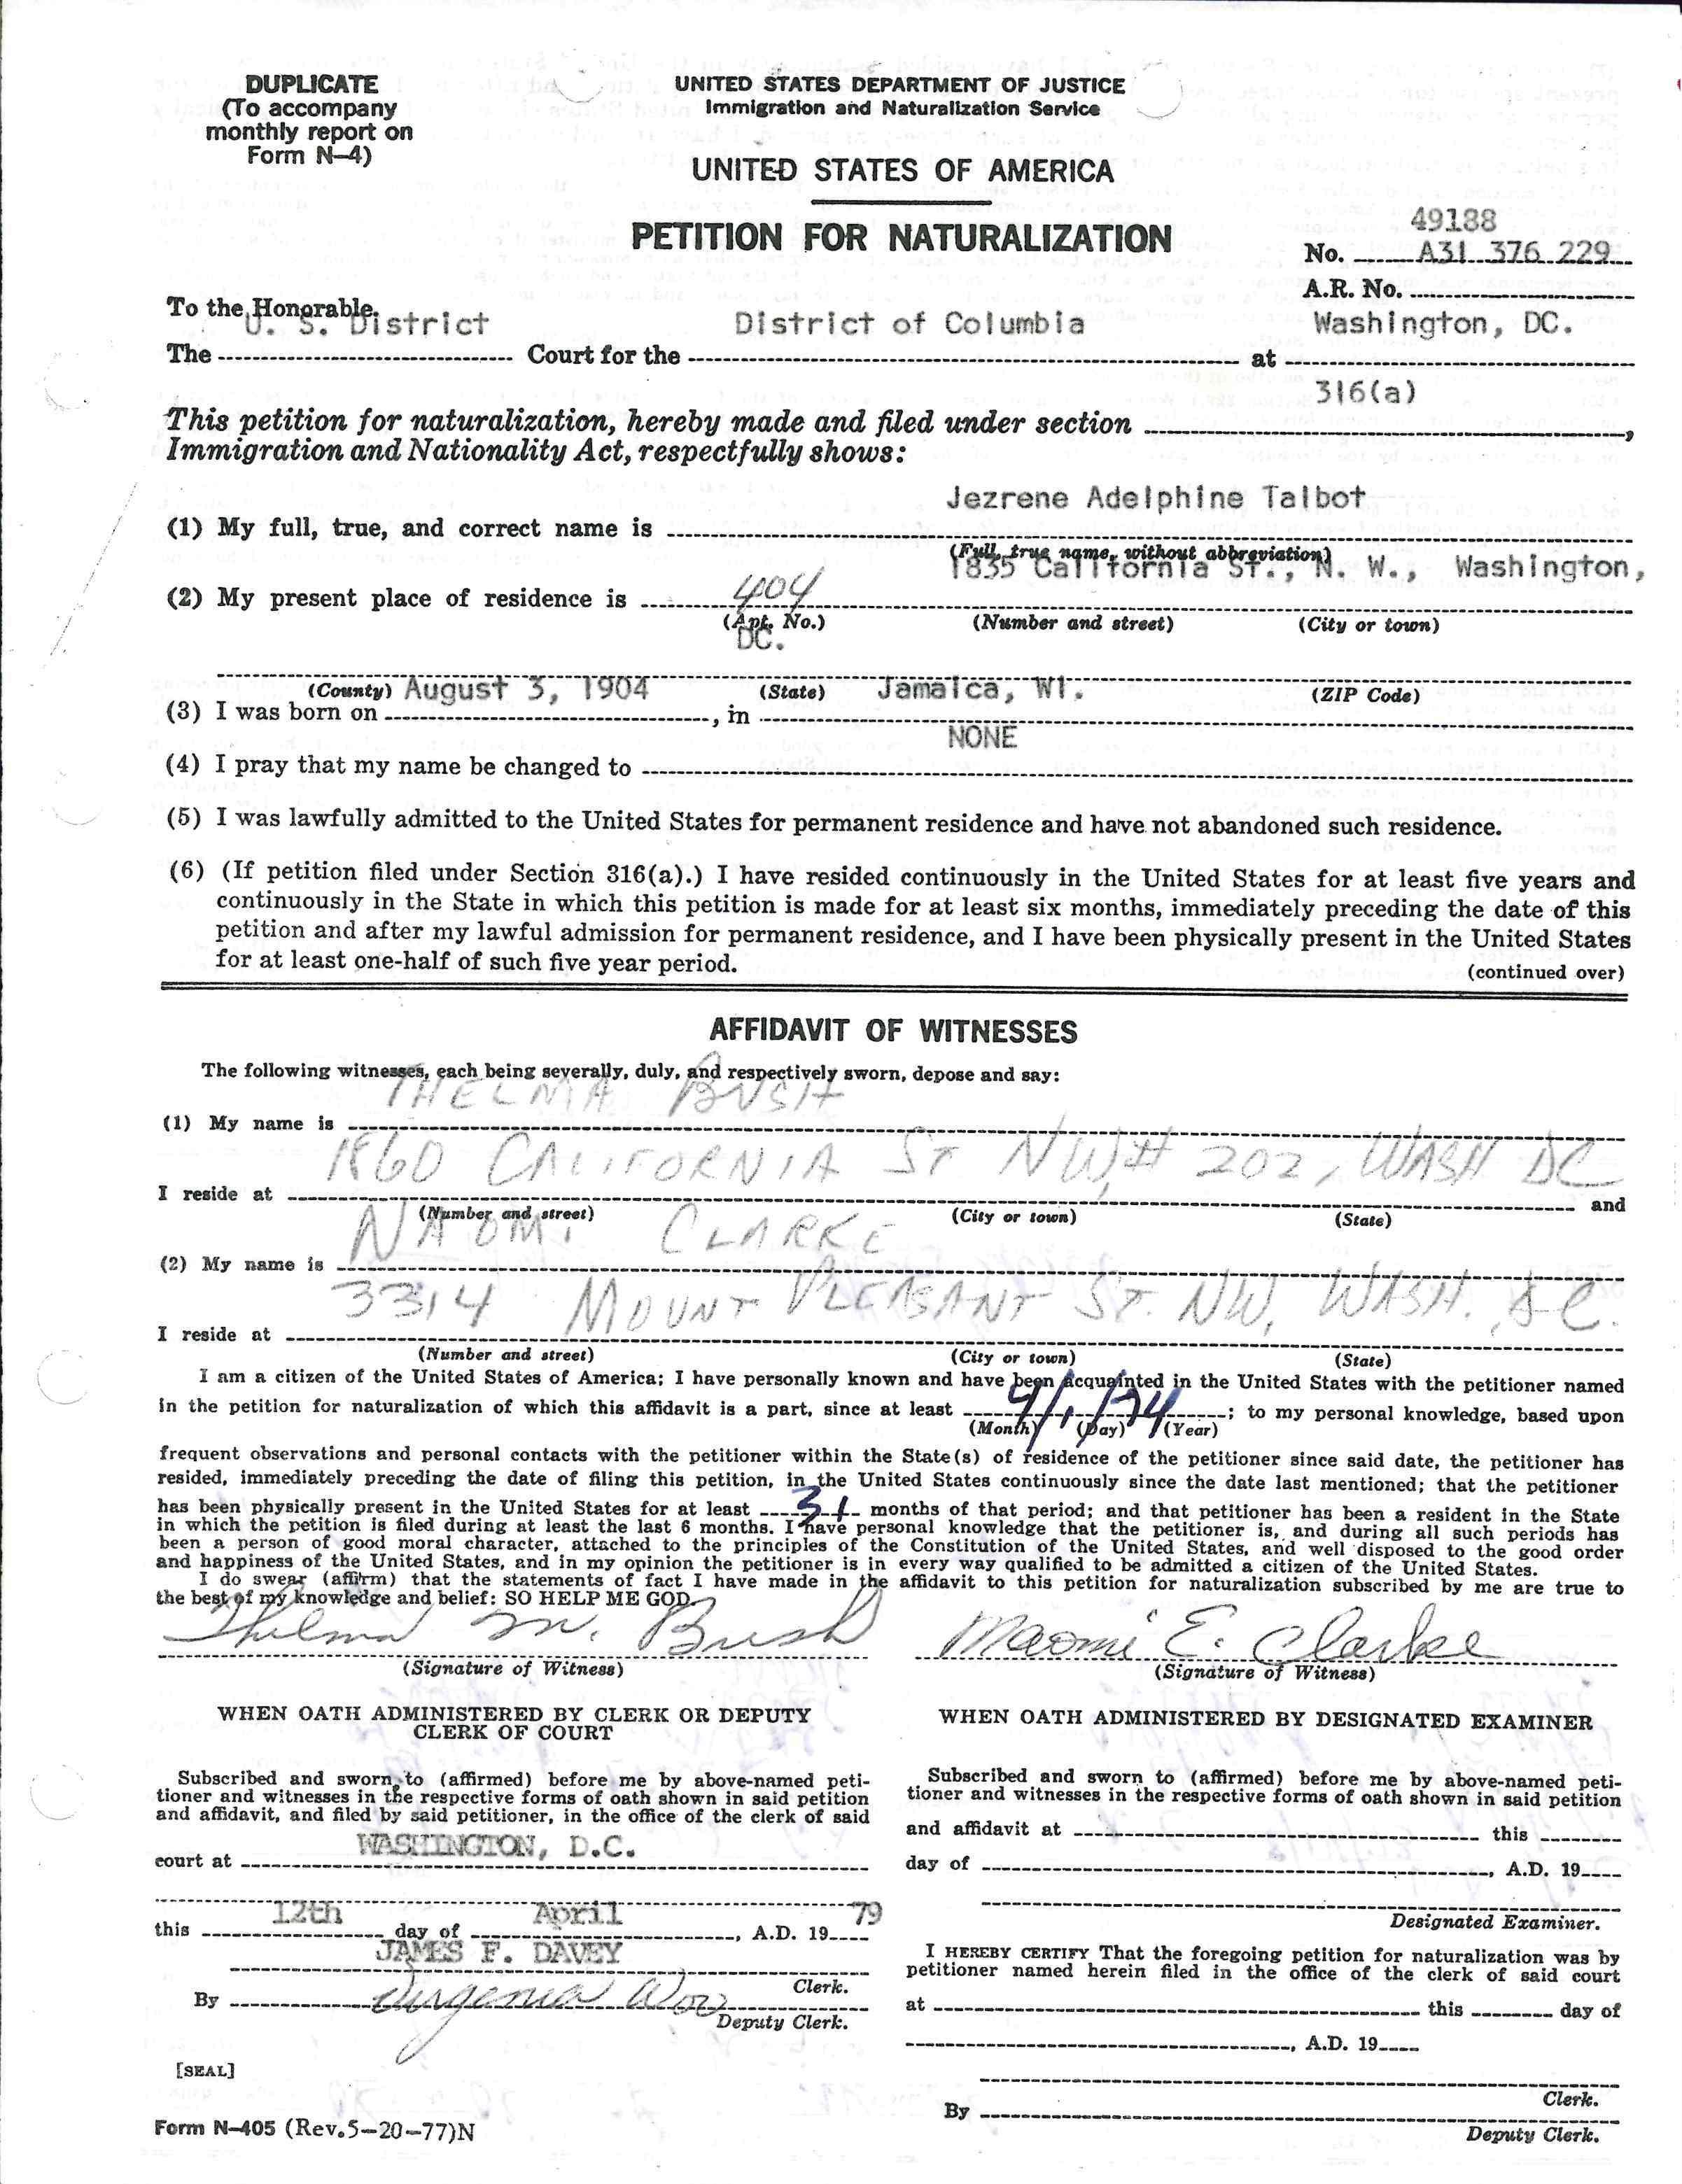 DUPLICATE
(To accompany
monthly report on
Form N-4)
UNITED STATES DEPARTMENT OF JUSTICE
Immigration and Naturalization Service
UNITED STATES OF AMERICA
PETITION FOR NATURALIZATION
49188
No. A31 376 229
A.R. No.
To the Honorable
U. S. District District of Columbia Washington, DC.
The Court for the at
316(a)
This petition for naturalization, hereby made and filed under section ,
Immigration and Nationality Act, respectfully shows:
Jezrene Adelphine Talbot
(1) My full, true, and correct name is
(Full, true name, without abbreviation)
1835 California St., N. W., Washington,
(2) My present place of residence is 404
(Apt. No.) (Number and street) (City or town)
DC.
(County) (State) (ZIP Code)
August 3, 1904 Jamaica, WI.
(3) I was born on , in
NONE
(4) I pray that my name be changed to
(5) I was lawfully admitted to the United States for permanent residence and have not abandoned such residence.
(6) (If petition filed under Section 316(a).) I have resided continuously in the United States for at least five years and
continuously in the State in which this petition is made for at least six months, immediately preceding the date of this
petition and after my lawful admission for permanent residence, and I have been physically present in the United States
for at least one-half of such five year period.
(continued over)
AFFIDAVIT OF WITNESSES
The following witnesses, each being severally, duly, and respectively sworn, depose and say:
THELMA BUSH
(1) My name is
1860 CALIFORNIA ST NW, # 202, WASH DC
I reside at and
(Number and street) (City or town) (State)
NAOMI CLARKE
(2) My name is
3314 MOUNT PLEASANT ST. NW, WASH. D.C.
I reside at
(Number and street) (City or town) (State)
I am a citizen of the United States of America; I have personally known and have been acquainted in the United States with the petitioner named
in the petition for naturalization of which this affidavit is a part, since at least 4/1/74; to my personal knowledge, based upon
(Month) (Day) (Year)
frequent observations and personal contacts with the petitioner within the State(s) of residence of the petitioner since said date, the petitioner has
resided, immediately preceding the date of filing this petition, in the United States continuously since the date last mentioned; that the petitioner
has been physically present in the United States for at least 31 months of that period; and that petitioner has been a resident in the State
in which the petition is filed during at least the last 6 months. I have personal knowledge that the petitioner is, and during all such periods has
been a person of good moral character, attached to the principles of the Constitution of the United States, and well disposed to the good order
and happiness of the United States, and in my opinion the petitioner is in every way qualified to be admitted a citizen of the United States.
I do swear (affirm) that the statements of fact I have made in the affidavit to this petition for naturalization subscribed by me are true to
the best of my knowledge and belief: SO HELP ME GOD.
Thelma M. Bush Naomi E. Clarke
(Signature of Witness) (Signature of Witness)
WHEN OATH ADMINISTERED BY CLERK OR DEPUTY
CLERK OF COURT
Subscribed and sworn to (affirmed) before me by above-named peti-
tioner and witnesses in the respective forms of oath shown in said petition
and affidavit, and filed by said petitioner, in the office of the clerk of said
WASHINGTON, D.C.
court at
12th April 79
this day of , A.D. 19
JAMES F. DAVEY
Clerk.
By Virgenia
Deputy Clerk.
[SEAL]
Form N-405 (Rev.5-20-77)N
WHEN OATH ADMINISTERED BY DESIGNATED EXAMINER
Subscribed and sworn to (affirmed) before me by above-named peti-
tioner and witnesses in the respective forms of oath shown in said petition
and affidavit at this
day of , A.D. 19
Designated Examiner.
I HEREBY CERTIFY That the foregoing petition for naturalization was by
petitioner named herein filed in the office of the clerk of said court
at this day of
, A.D. 19
Clerk.
By
Deputy Clerk.